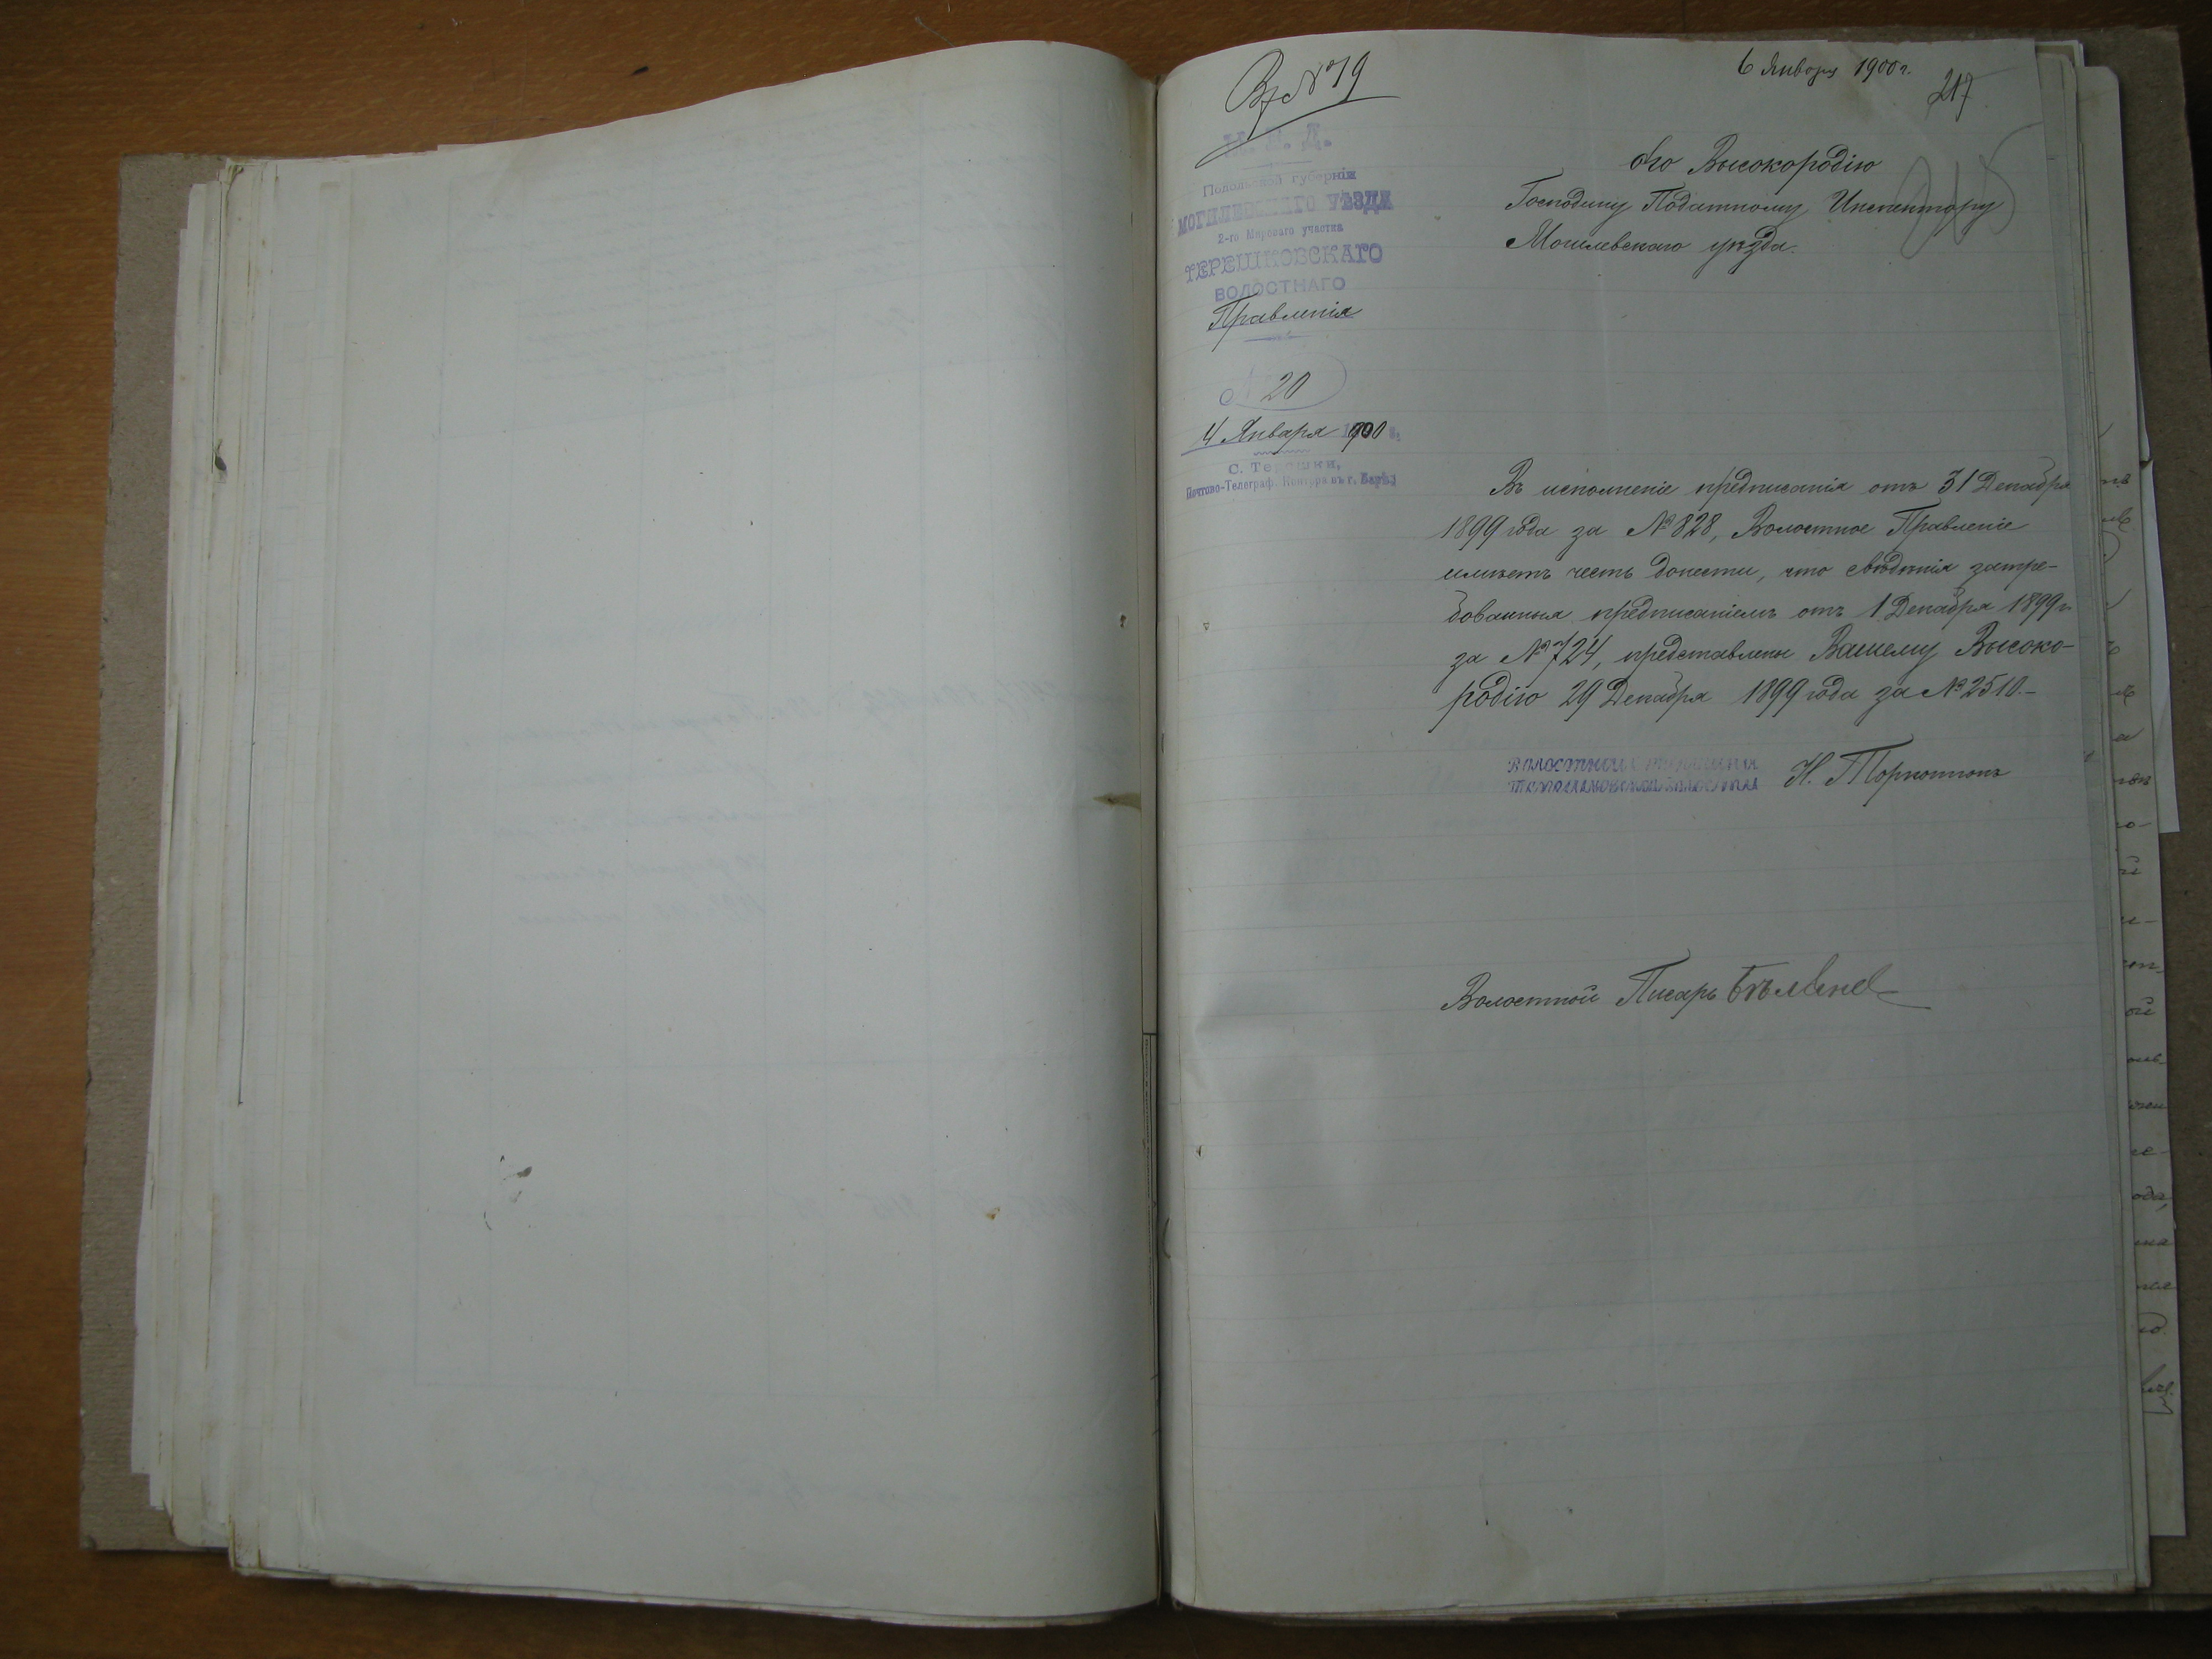 Вх № 19
6 Января 1900 г.
217
215
М. В. Д.
Подольской губерніи
МОГИЛЕВСКАГО УѢЗДА
2-го Мирового участка
ТЕРЕШКОВСКАГО
ВОЛОСТНАГО
Правленія
№ 20
4 Января 1900 г.
С. Терешки,
Почтово-Телеграф. Контора въ г. Барѣ
Его Высокородію
Господину Податному Инспектору
Могилевскаго уѣзда.
Въ исполненіе предписанія отъ 31 Декабря
1899 года за № 828, Волостное Правленіе
имѣетъ честь донести, что свѣдѣнія затре-
бованныя предписаніемъ отъ 1 Декабря 1899 г.
за № 724, представлены Вашему Высоко-
родію 29 Декабря 1899 года за № 2510.-
Волостной Старшина
Терешковской волости Н.
Волостной Писарь